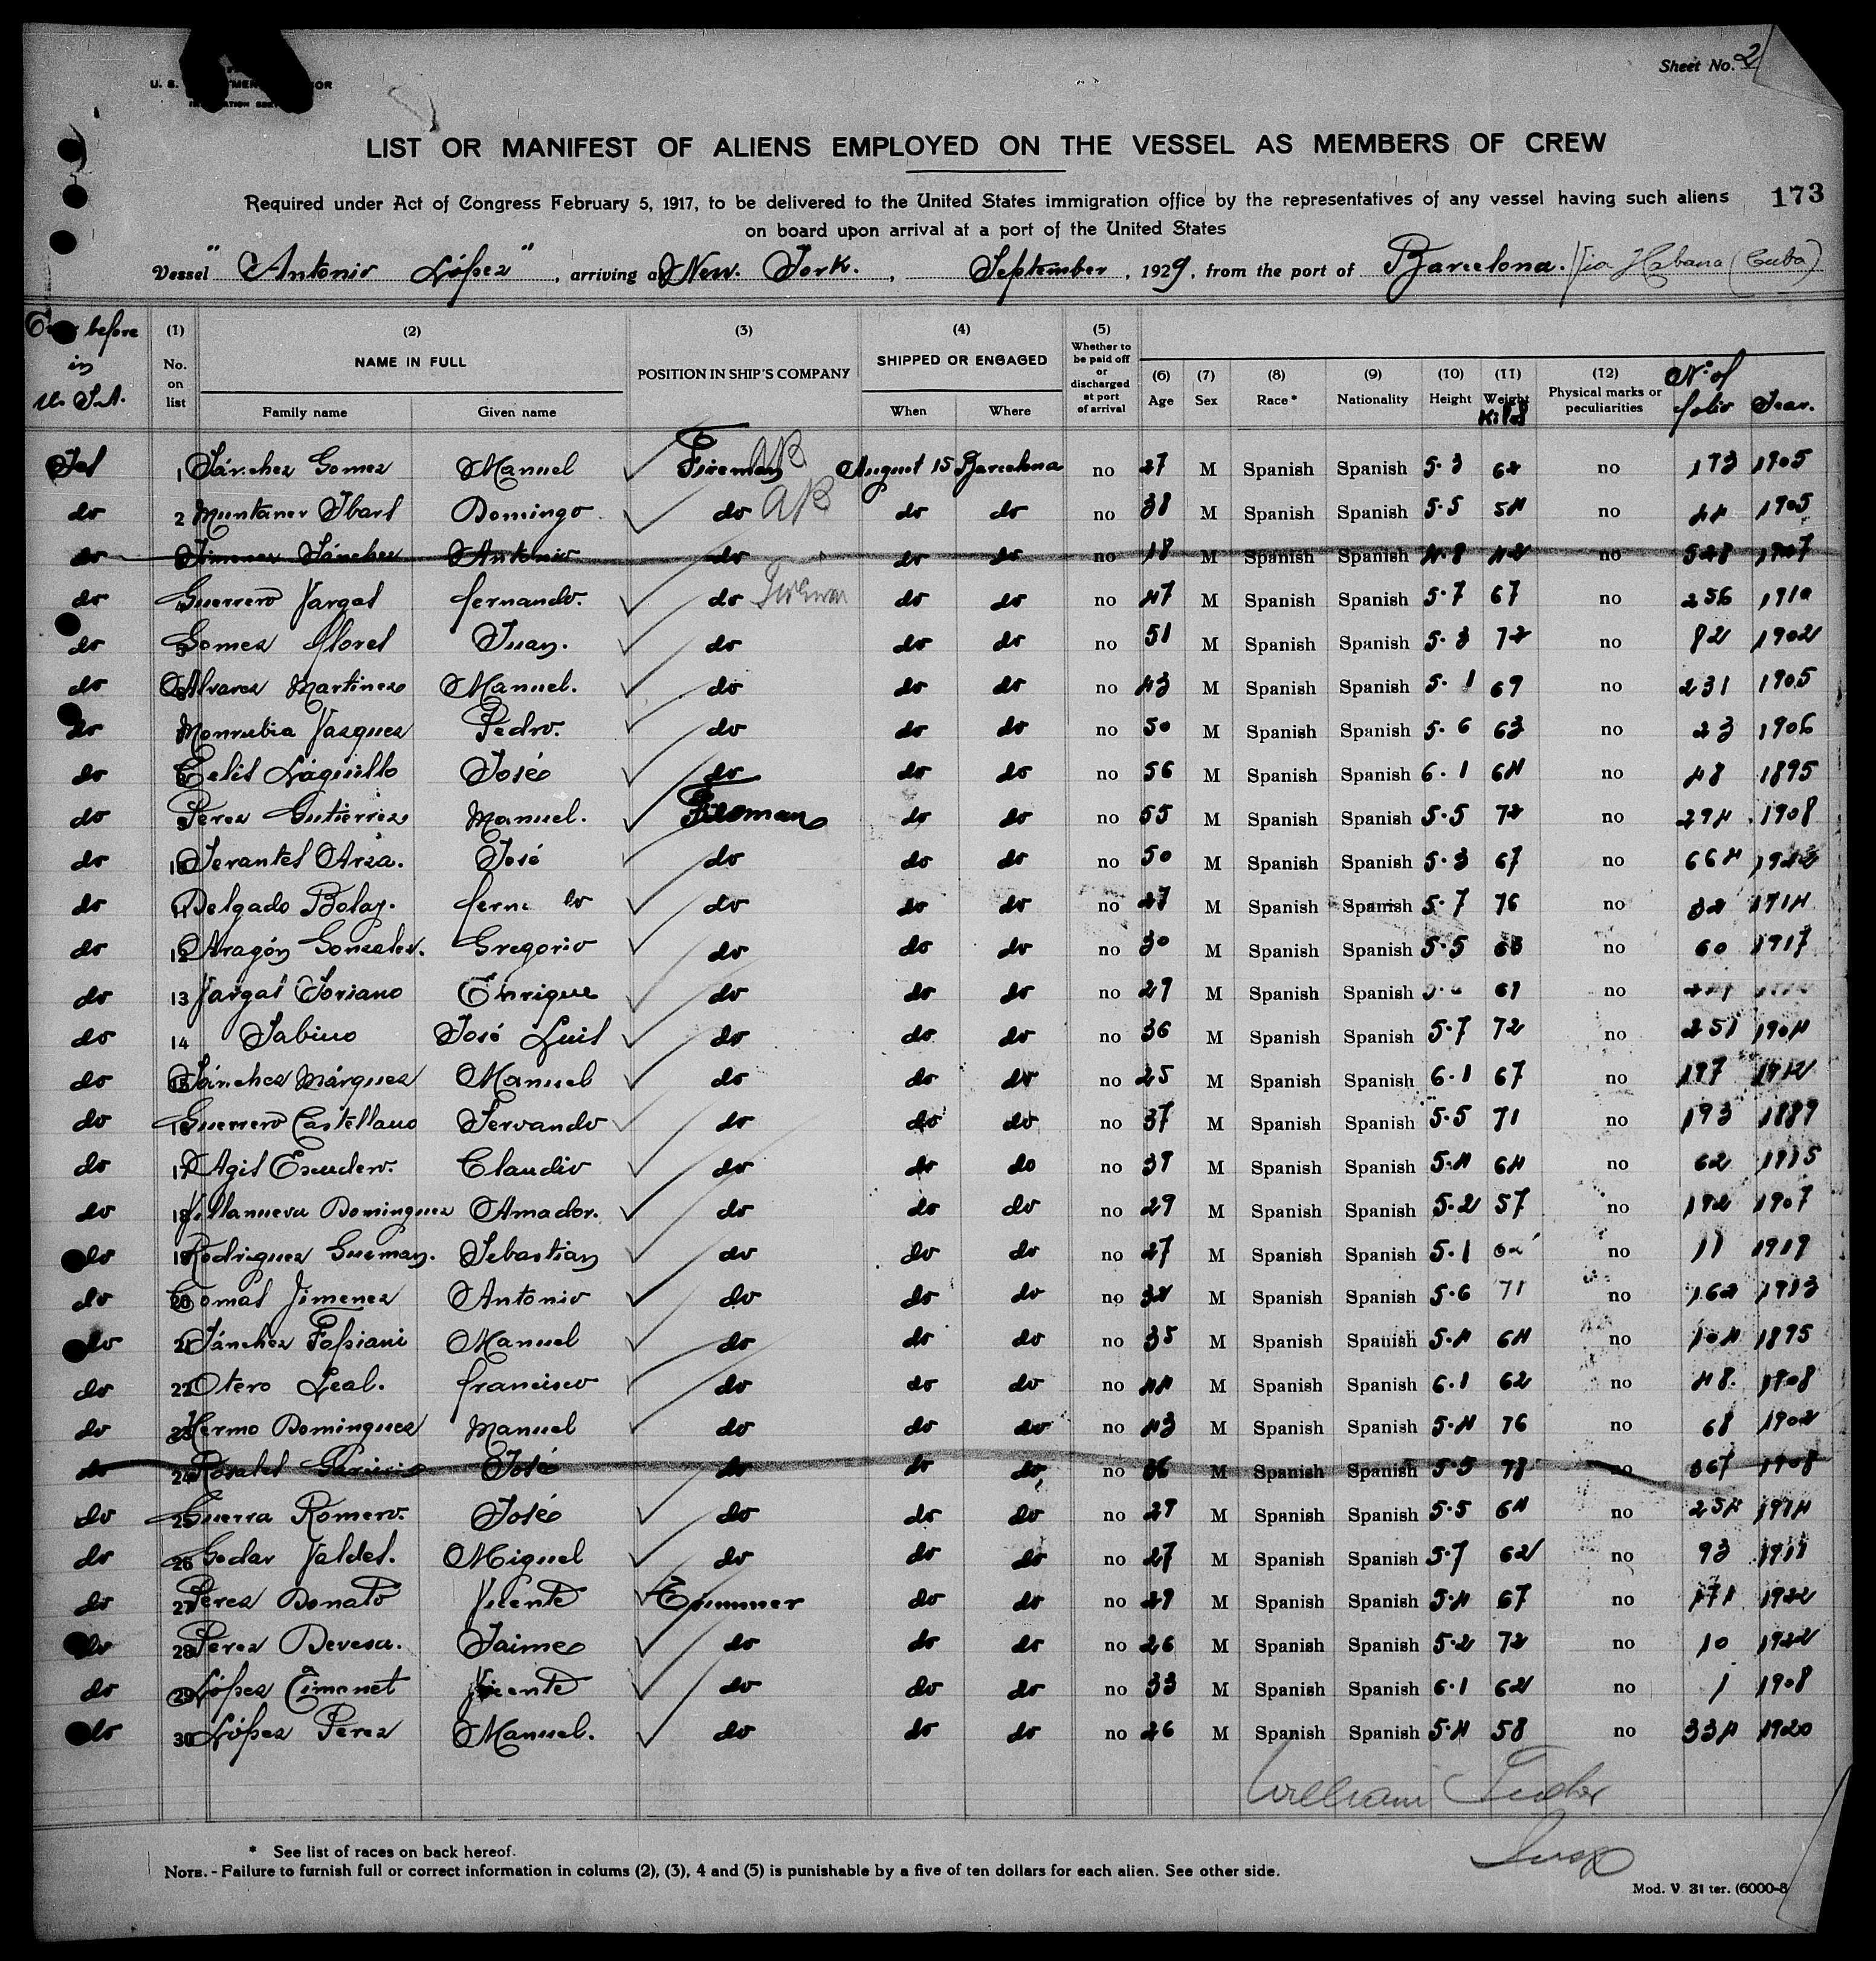 Sheet No. 2
U. S.
LIST OR MANIFEST OF ALIENS EMPLOYED ON THE VESSEL AS MEMBERS OF CREW
Required under Act of Congress February 5, 1917, to be delivered to the United States immigration office by the representatives of any vessel having such aliens
173
on board upon arrival at a port of the United States
Vessel "Antonio López", arriving at New York., September, 1929, from the port of Barcelona. Via Habana (Cuba)
before in U.S.A. (1) No. on list (2) NAME IN FULL Family name Given name (3) POSITION IN SHIP'S COMPANY (4) SHIPPED OR ENGAGED When Where (5) Whether to be paid off or discharged at port of arrival (6) Age (7) Sex (8) Race * (9) Nationality (10) Height (11) Weight Kilos (12) Physical marks or peculiarities Nº of folio Year.
1 Sánchez Gomez Manuel Fireman AB August 15 Barcelona no 27 M Spanish Spanish 5.3 62 no 173 1905
do 2 Muntaner Domingo do AB do do no 38 M Spanish Spanish 5.5 54 no 44 1905
do Jimenez Sánchez Antonio do do do no 18 M Spanish Spanish 4.8 42 no 528 1907
do Guerrero Vargas fernando. do do do no 47 M Spanish Spanish 5.7 67 no 256 1910
do Gomez flores Juan. do do do no 51 M Spanish Spanish 5.3 72 no 82 1902
do Alvarez Martinez Manuel. do do do no 43 M Spanish Spanish 5.1 69 no 231 1905
do Monrubia Vazquez Pedro. do do do no 50 M Spanish Spanish 5.6 63 no 23 1906
do Celis José do do do no 56 M Spanish Spanish 6.1 64 no 48 1895
do Perez Gutierrez Manuel. Fireman do do no 55 M Spanish Spanish 5.5 72 no 294 1908
do 10 José do do do no 50 M Spanish Spanish 5.3 67 no 664
do 11 Delgado do do do no 27 M Spanish Spanish 5.7 76 no 32 1914
do 12 Aragón Gonzalez. Gregorio do do do no 30 M Spanish Spanish 5.5 63 no 60 1917
do 13 Vargas Soriano Enrique do do do no 29 M Spanish Spanish 69 no
do 14 Sabino José Luis do do do no 36 M Spanish Spanish 5.7 72 no 251 1904
do 15 Sánchez Márquez Manuel do do do no 25 M Spanish Spanish 6.1 67 no 197 1912
do 16 Guerrero Castellano Servando do do do no 37 M Spanish Spanish 5.5 71 no 193 1889
do 17 Claudio do do do no 39 M Spanish Spanish 5.4 64 no 62
do 18 Villanueva Dominguez Amador. do do do no 29 M Spanish Spanish 5.2 57 no 192 1907
do 19 Rodriguez Guzman. Sebastian do do do no 27 M Spanish Spanish 5.1 no 11 1919
do 20 Comas Jimenez Antonio do do do no 32 M Spanish Spanish 5.6 71 no 162 1913
do 21 Sánchez Manuel do do do no 35 M Spanish Spanish 5.4 64 no 104 1895
do 22 Otero Leal. francisco do do do no 44 M Spanish Spanish 6.1 62 no 48. 1908
do 23 Hermo Dominguez Manuel do do do no 43 M Spanish Spanish 5.4 76 no 68 1902
do 24 Rosales Garcia José do do do no 36 M Spanish Spanish 5.5 78 no 367 1908
do 25 Guerra Romero. José do do do no 29 M Spanish Spanish 5.5 64 no 254 1914
do 26 Godar Valdes. Miguel do do do no 27 M Spanish Spanish 5.7 62 no 93 1911
do 27 Perez Donato Vicente Trimmer do do no 29 M Spanish Spanish 5.4 67 no 171 1922
do 28 Perez Devesa. Jaime do do do no 26 M Spanish Spanish 5.2 72 no 10 1922
do 29 López Vicente do do do no 33 M Spanish Spanish 6.1 62 no 1 1908
do 30 López Perez Manuel. do do do no 26 M Spanish Spanish 5.4 58 no 334 1920
William
* See list of races on back hereof.
NOTE. - Failure to furnish full or correct information in colums (2), (3), 4 and (5) is punishable by a five of ten dollars for each alien. See other side.
Mod. V. 31 ter. (6000-8